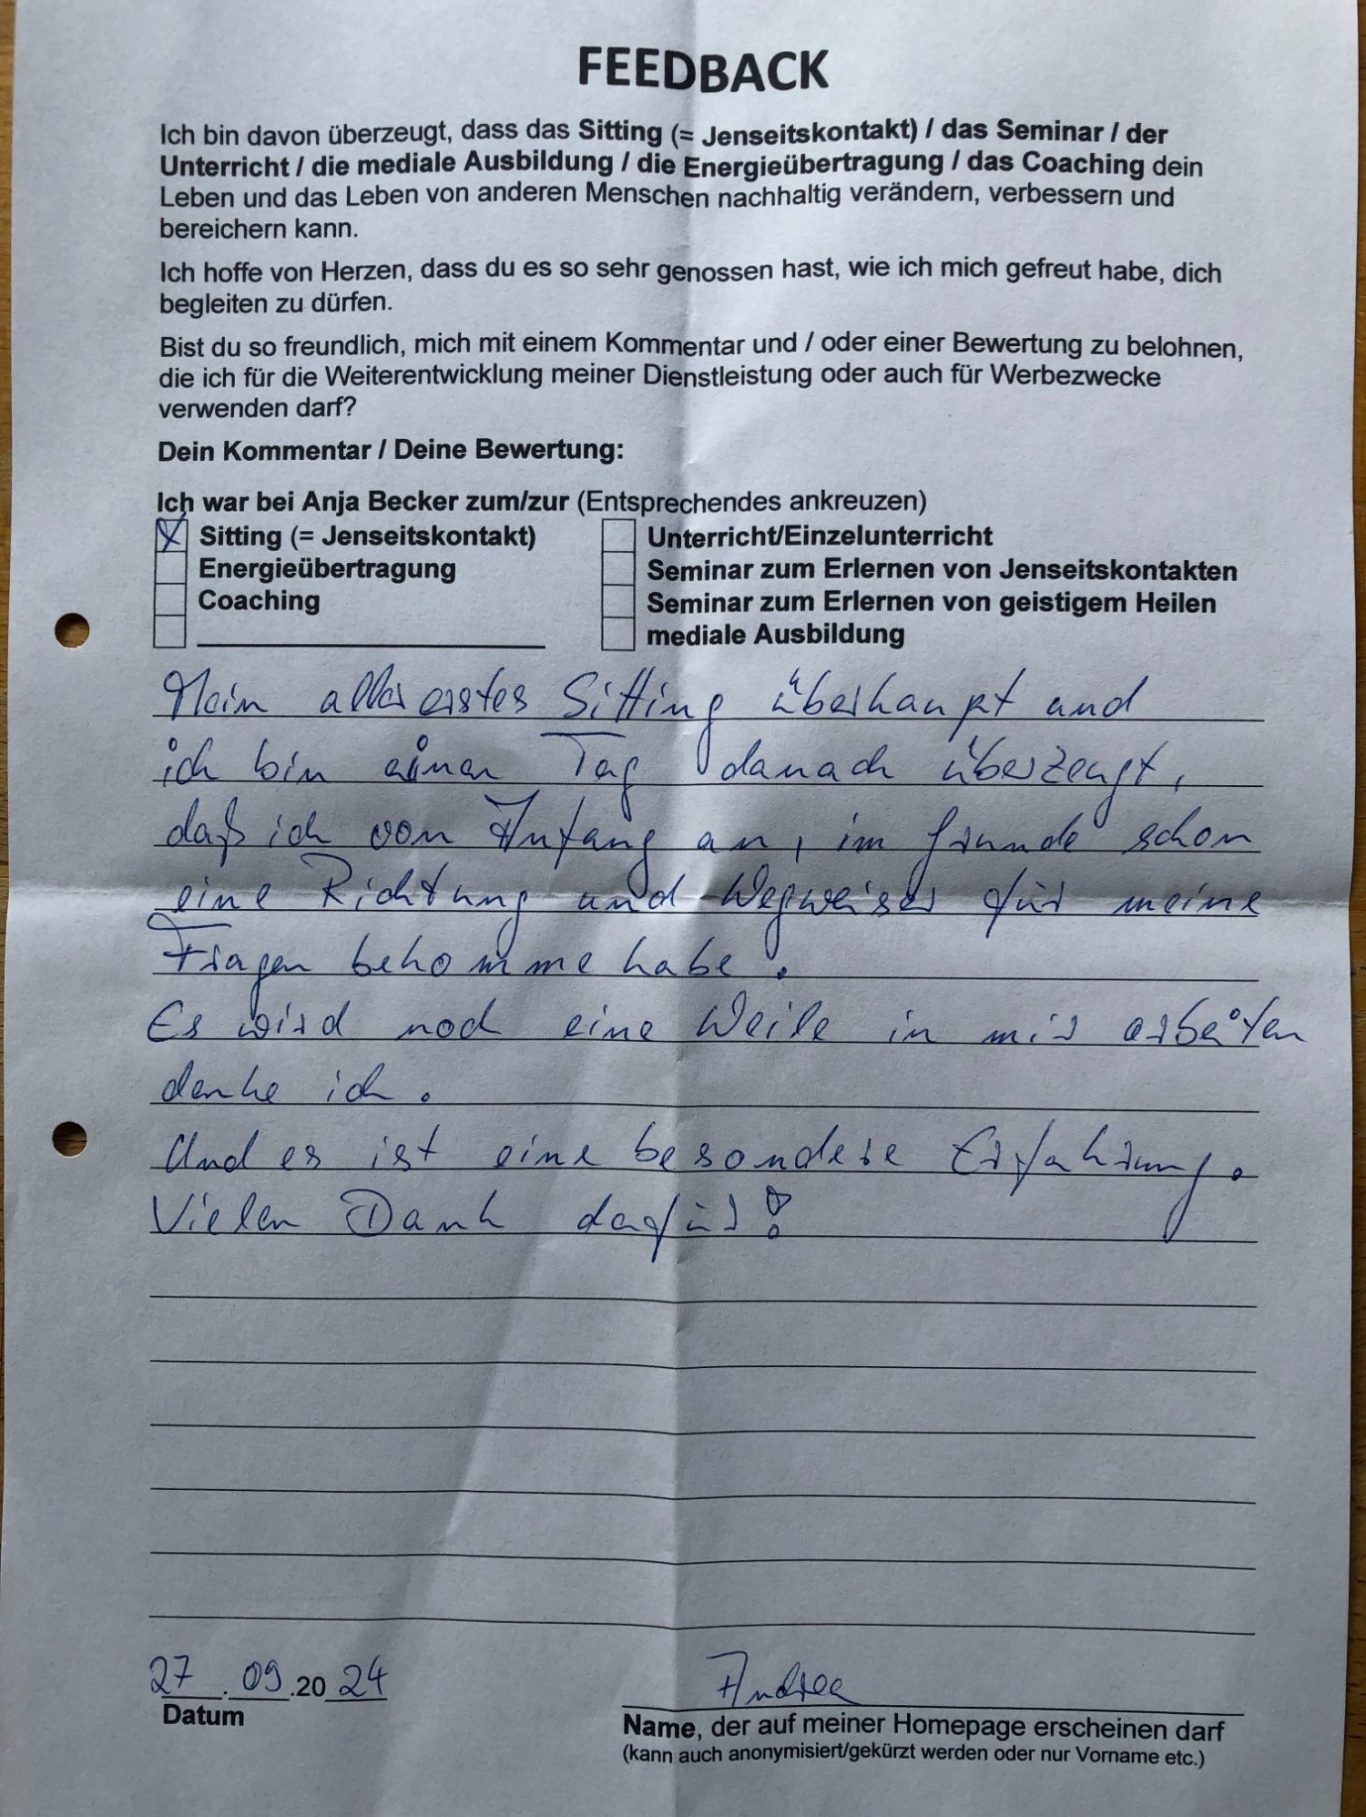 FEEDBACK
Ich bin davon überzeugt, dass das Sitting (= Jenseitskontakt) / das Seminar / der
Unterricht / die mediale Ausbildung / die Energieübertragung / das Coaching dein
Leben und das Leben von anderen Menschen nachhaltig verändern, verbessern und
bereichern kann.
Ich hoffe von Herzen, dass du es so sehr genossen hast, wie ich mich gefreut habe, dich
begleiten zu dürfen.
Bist du so freundlich, mich mit einem Kommentar und / oder einer Bewertung zu belohnen,
die ich für die Weiterentwicklung meiner Dienstleistung oder auch für Werbezwecke
verwenden darf?
Dein Kommentar / Deine Bewertung:
Ich war bei Anja Becker zum/zur (Entsprechendes ankreuzen)
X Sitting (= Jenseitskontakt)
Energieübertragung
Coaching
Unterricht/Einzelunterricht
Seminar zum Erlernen von Jenseitskontakten
Seminar zum Erlernen von geistigem Heilen
mediale Ausbildung
Mein allererstes Sitting überhaupt und
ich bin einen Tag danach überzeugt,
daß ich von Anfang an, im Grunde schon
eine Richtung und Wegweiser für meine
Fragen bekomme habe.
Es wird noch eine Weile in mir arbeiten
denke ich.
Und es ist eine besondere Erfahrung.
Vielen Dank dafür!
27.09.2024
Datum
Andrea
Name, der auf meiner Homepage erscheinen darf
(kann auch anonymisiert/gekürzt werden oder nur Vorname etc.)